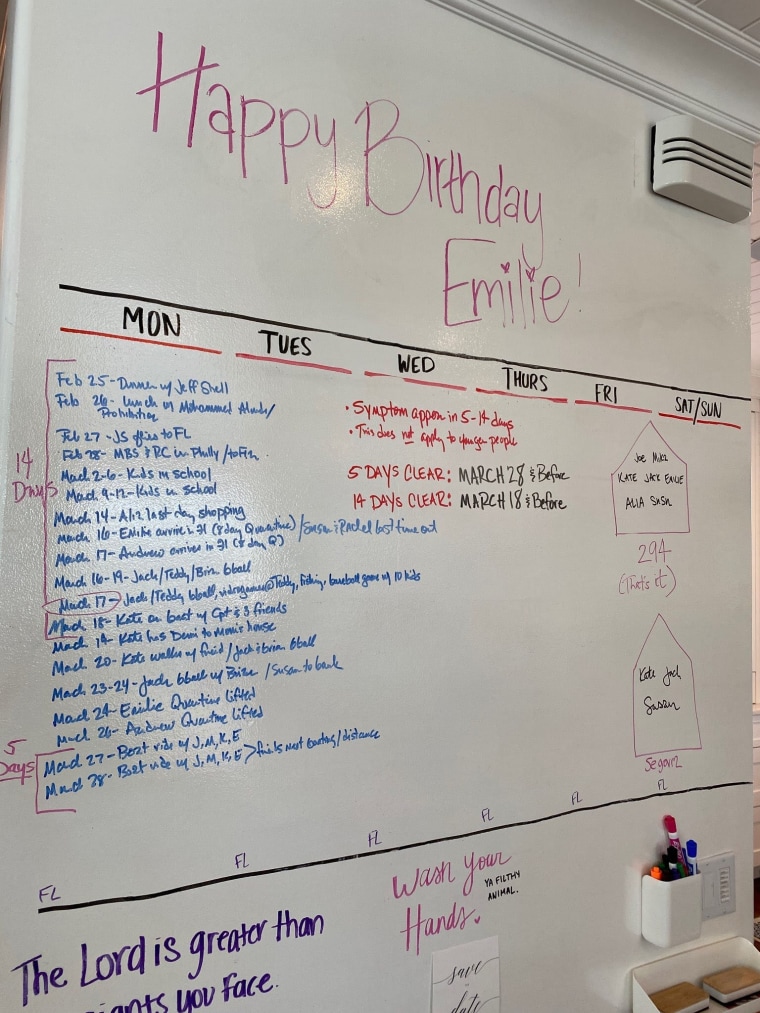 Happy Birthday
Emilie!
MON
TUES
WED
THURS
FRI
SAT/SUN
14
Days
Feb 25- Dinner w/ Jeff Shell
Feb 26- Lunch w/ Mohammed
Prohibition
Feb 27- JS flies to FL
Feb 28- MBS & RC in Philly /to
March 2-6- Kids in school
March 9-12- Kids in school
March 14- last day shopping
March 16- Emilie arrive in (8 day Quarantine) / Susan & Rachel last time out
March 17- Andrew arrives in (8 day Q)
March 16-19- Jack/Teddy/Brian bball
March 17- Jack/Teddy bball, videogames@Teddy, fishing, baseball game w/ 10 kids
March 18- Kate on boat w/ Cpt & 3 friends
March 19- Kate has Demi to house
March 20- Kate walks w/ / Jack & brian bball
March 23-24- Jack bball w/ Brian /Susan to bank
March 24- Emilie Quarantine Lifted
March 26- Andrew Quarantine Lifted
5
Days
March 27- Boat ride w/ J, M, K, E
March 28- Boat ride w/ J, M, K, E > friends boating/distance
• Symptom appear in 5-14 days
• This does not apply to younger people
5 DAYS CLEAR: MARCH 28 & Before
14 DAYS CLEAR: MARCH 18 & Before
Joe Mike
KATE JACK EMILIE
SUSAN
294
(That's it)
Kate Jack
Susan
Segovia
FL
FL
FL
FL
FL
FL
Wash your
Hands.
YA FILTHY
ANIMAL.
The Lord is greater than
you face.
save
date